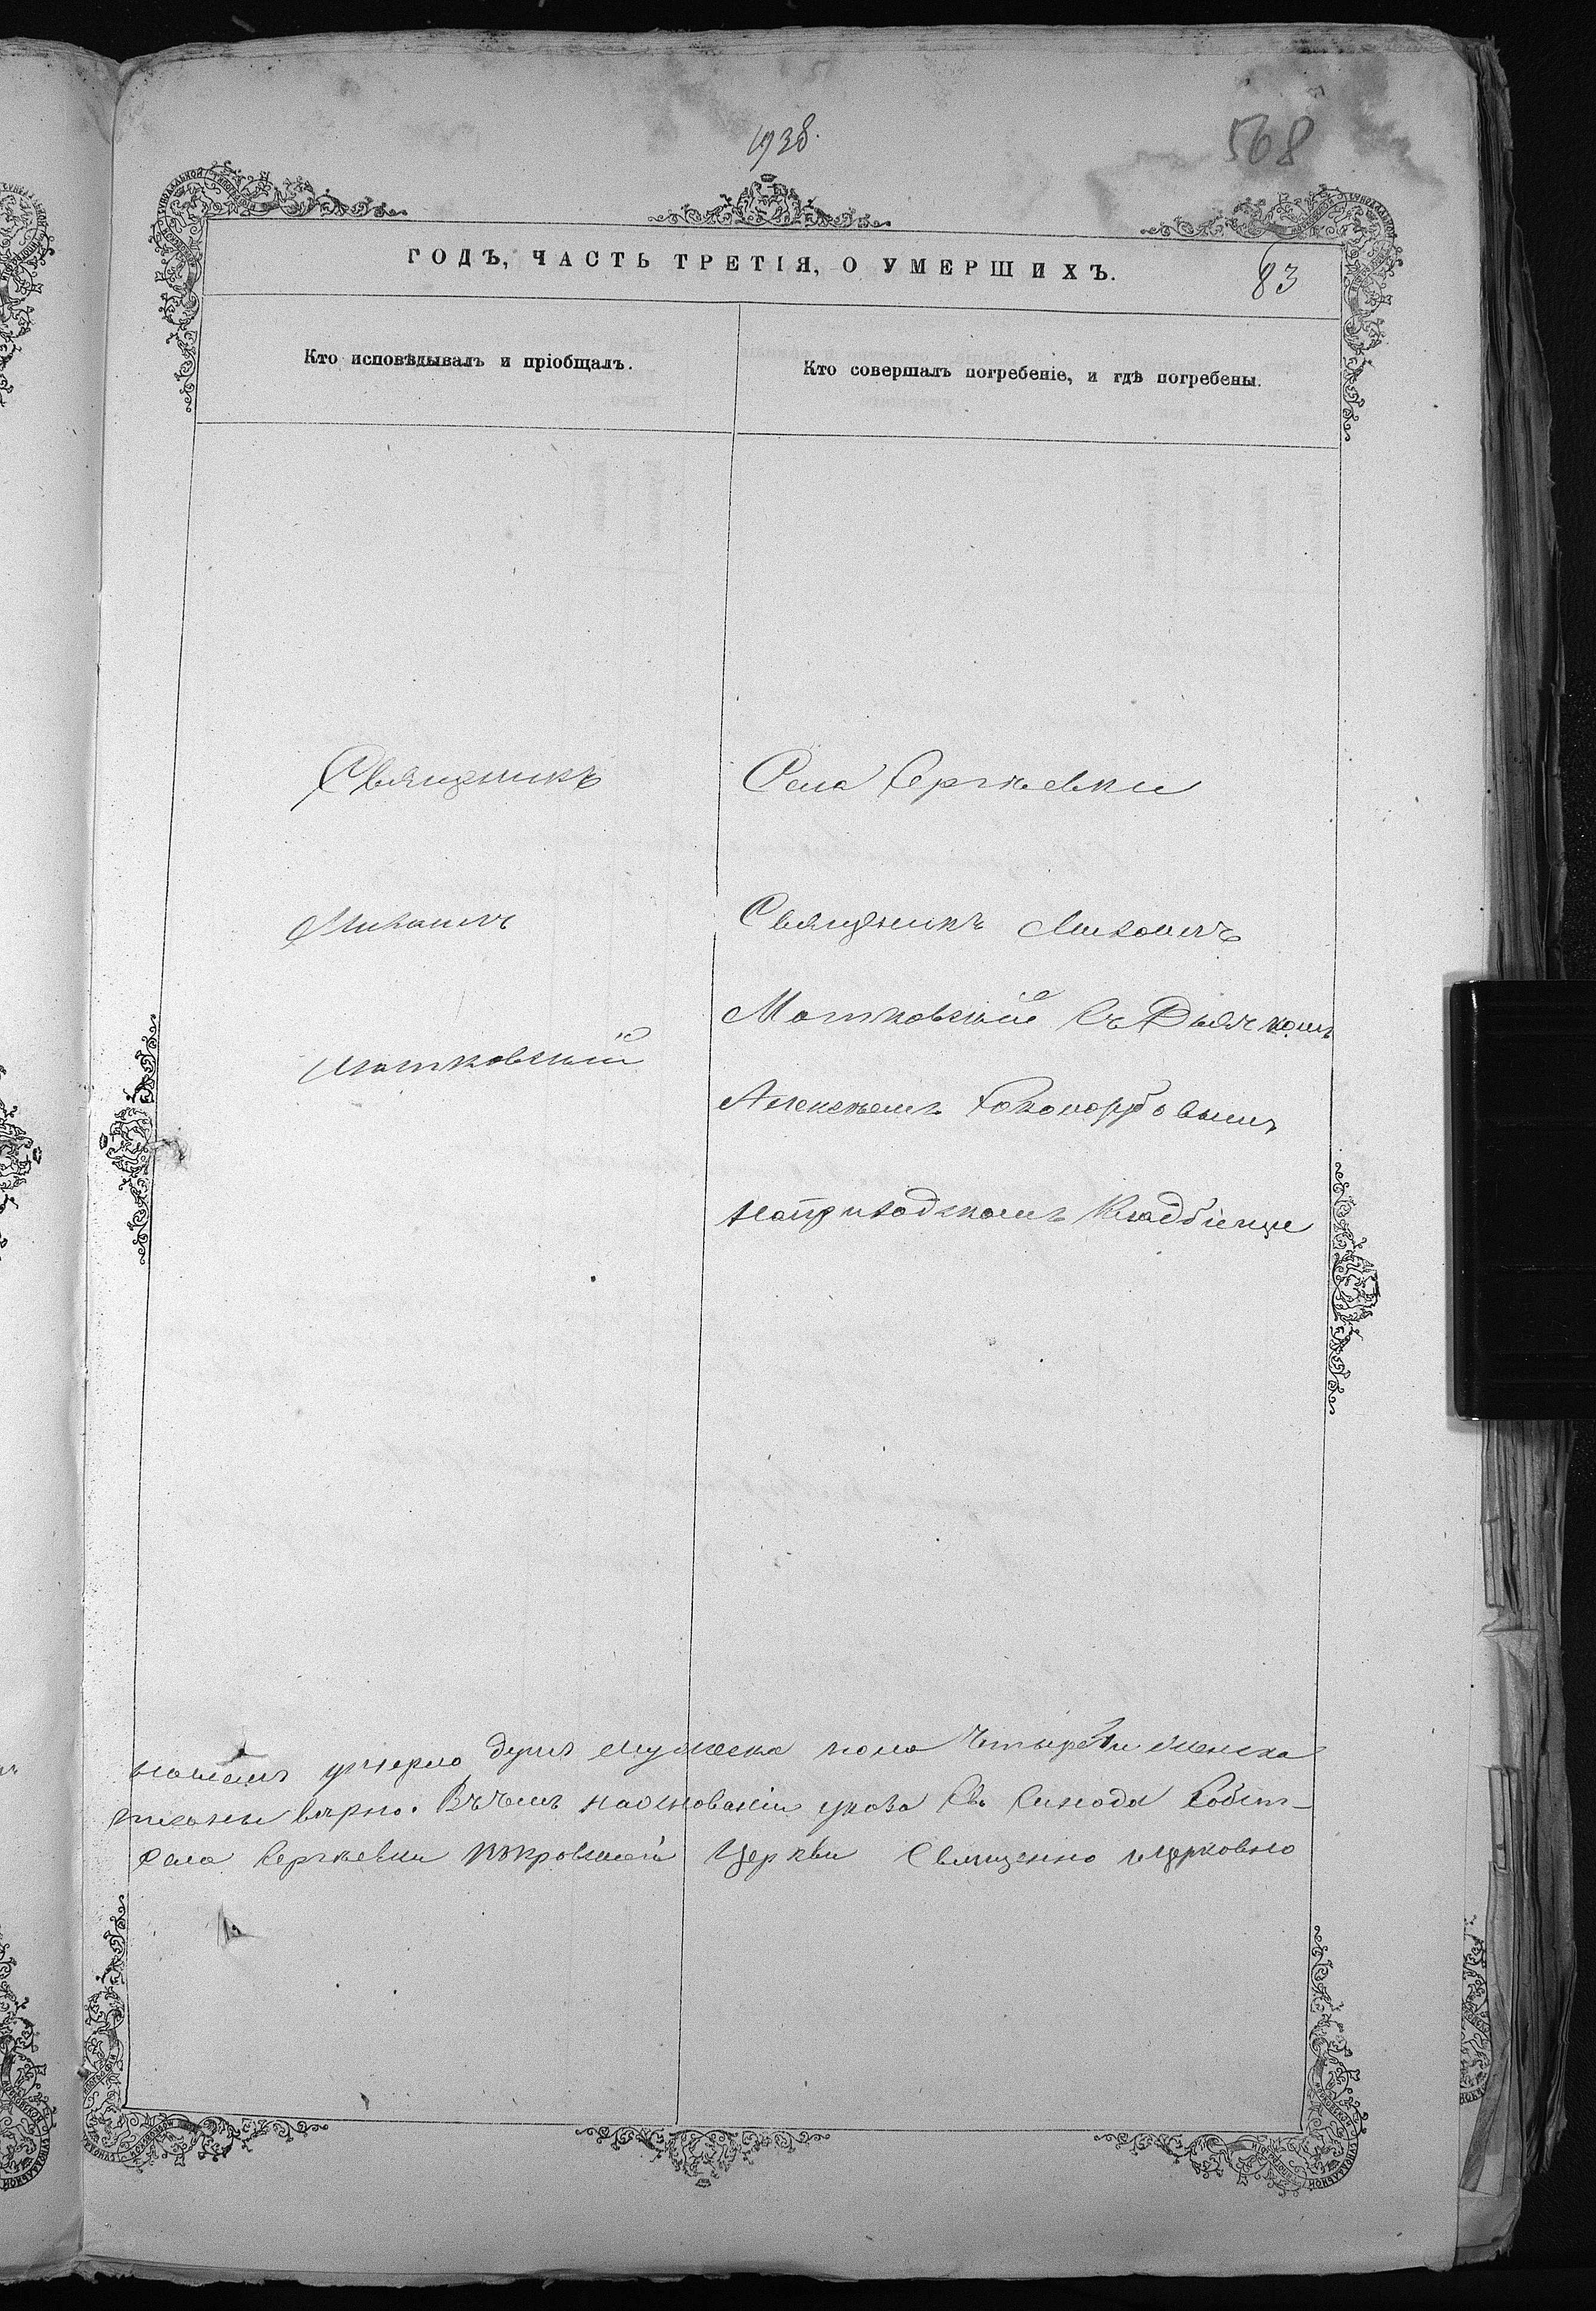 1938.
568
ГОДЪ, ЧАСТЬ ТРЕТІЯ, О УМЕРШИХЪ.
83
Кто исповѣдывалъ и пріобщалъ.
Кто совершалъ погребеніе, и гдѣ погребены.
Священикъ
Михаилъ
Матковскій
Села Сергѣевки
Священикъ Михаилъ
Матковскій Съ Дьячкомъ
Алексѣемъ
наприходскомъ Кладбіище
умерло душъ мужеска пола Четыре и женска
вѣрно. Въчемъ наоснованіи указа Св. Синода
Села Сергѣевки Покровской Церкви Священно ицерковно